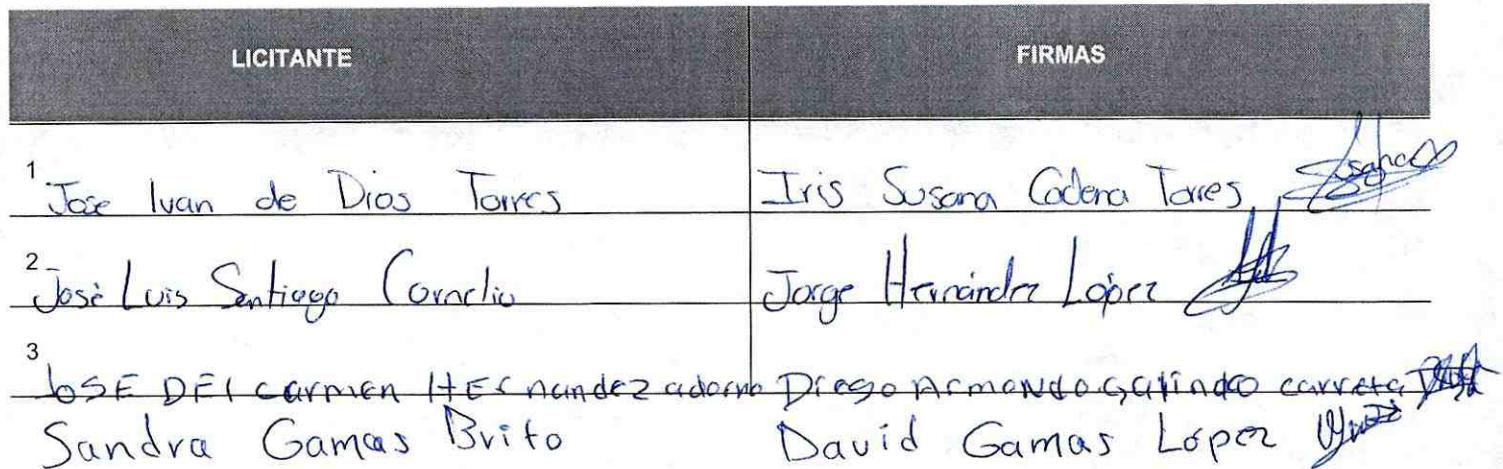 LICITANTE FIRMAS
1 Jose Ivan de Dios Torres Iris Susana Cadena Torres Susana
2 José Luis Santiago Cornelio Jorge Hernández López
3 JOSE DEl carmen HErnandez adorno Diego Armando Galindo carreta
Sandra Gamas Brito David Gamas López